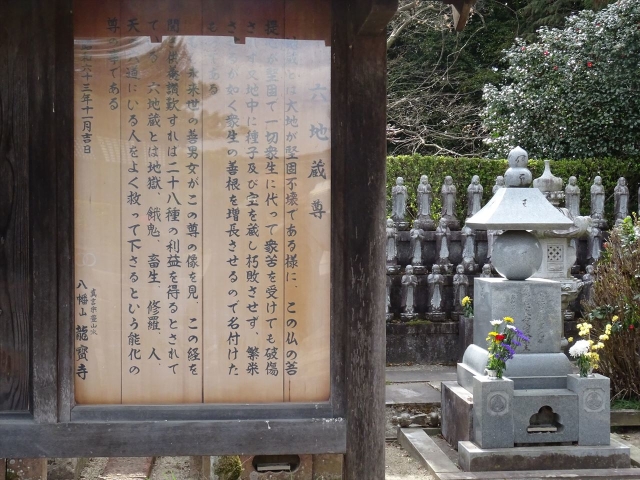 六地蔵尊
地蔵とは大地が堅固不壊である様に、この仏の苦
提心が堅固で一切衆生に代って衆苦を受けても破傷
されず又地中に種子及び宝を蔵し朽敗させず、繁栄
させるが如く衆生の善根を増長させるので名付けた
ものである
未来世の善男女がこの尊の像を見、この経を
聞き供養讃歎すれば二十八種の利益を得るとされて
いる。六地蔵とは地獄、餓鬼、畜生、修羅、人、
天の六道にいる人をよく救って下さるという能化の
尊の事である
昭和六十三年十一月吉日
真言宗霊山派
八幡山 龍寳寺